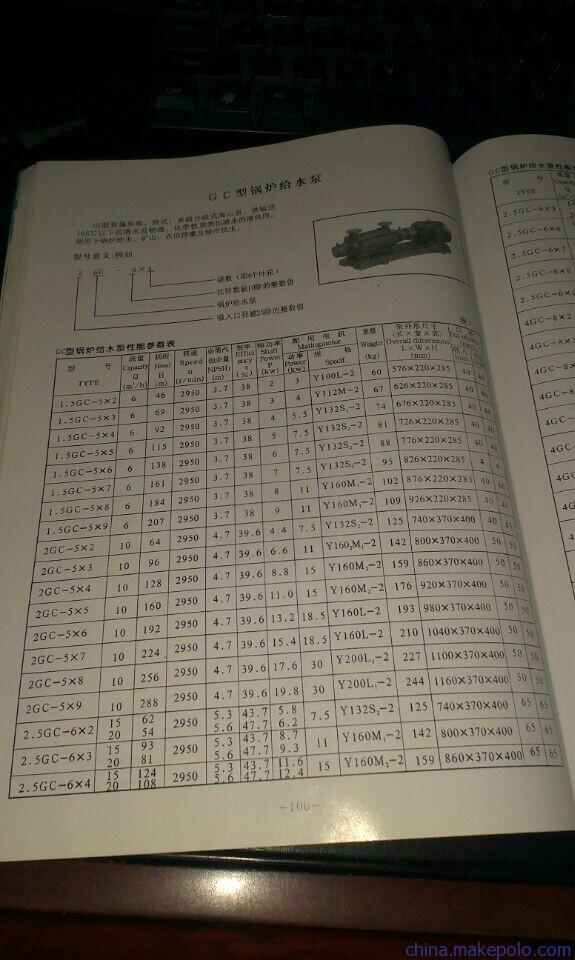 GC型锅炉给水泵
GC型泵属单吸、卧式、多级分段式离心泵。供输送
105℃以下的清水及物理、化学性质类似清水的液体用。
适用于锅炉给水、矿山、农田排灌及城市供水。
型号意义:例如
2 GC - 8×4
级数(即4个叶轮)
比转数被10除的整数值
锅炉给水泵
吸入口径被25除的整数值
GC型锅炉给水泵性能参数表
型 号 TYPE 流量 Capacity Q (m³/h) 扬程 Head H (m) 转速 Speed n (r/min) 必需汽蚀余量 NPSHr (m) 效率 Efficiency η (%) 轴功率 Shaft Power P (kw) 配用电机 功率 Power (kw) 规格 Specif 重量 Weight (kg) 泵外形尺寸 (长×宽×高) Overall dimensions L×W×H (mm)
1.5GC-5×2 6 46 2950 3.7 38 2 3 Y100L-2 60 576×220×285 40 40
1.5GC-5×3 6 69 2950 3.7 38 3 4 Y112M-2 67 626×220×285 40 40
1.5GC-5×4 6 92 2950 3.7 38 4 5.5 Y132S₁-2 74 676×220×285 40 40
1.5GC-5×5 6 115 2950 3.7 38 5 7.5 Y132S₂-2 81 726×220×285 40 40
1.5GC-5×6 6 138 2950 3.7 38 6 7.5 Y132S₂-2 88 776×220×285 40 40
1.5GC-5×7 6 161 2950 3.7 38 7 7.5 Y132S₂-2 95 826×220×285 4 4
1.5GC-5×8 6 184 2950 3.7 38 8 11 Y160M₁-2 102 876×220×285 40 40
1.5GC-5×9 6 207 2950 3.7 38 9 11 Y160M₁-2 109 926×220×285 40 40
2GC-5×2 10 64 2950 4.7 39.6 4.4 7.5 Y132S₂-2 125 740×370×400 40 40
2GC-5×3 10 96 2950 4.7 39.6 6.6 11 Y160M₁-2 142 800×370×400 50 50
2GC-5×4 10 128 2950 4.7 39.6 8.8 15 Y160M₂-2 159 860×370×400 50 50
2GC-5×5 10 160 2950 4.7 39.6 11.0 15 Y160M₂-2 176 920×370×400 50 50
2GC-5×6 10 192 2950 4.7 39.6 13.2 18.5 Y160L-2 193 980×370×400 50 50
2GC-5×7 10 224 2950 4.7 39.6 15.4 18.5 Y160L-2 210 1040×370×400 50 50
2GC-5×8 10 256 2950 4.7 39.6 17.6 30 Y200L₁-2 227 1100×370×400 50 50
2GC-5×9 10 288 2950 4.7 39.6 19.8 30 Y200L₁-2 244 1160×370×400 50 50
2.5GC-6×2 15 62 2950 5.3 43.7 5.8 7.5 Y132S₂-2 125 740×370×400 65 65
20 54 5.6 47.7 6.2
2.5GC-6×3 15 93 2950 5.3 43.7 8.7 11 Y160M₁-2 142 800×370×400 65 65
20 81 5.6 47.7 9.3
2.5GC-6×4 15 124 2950 5.3 43.7 11.6 15 Y160M₂-2 159 860×370×400 65 65
20 108 5.6 47.7 12.4
-100-
GC型锅炉给水泵性能
型 号
TYPE
2.5GC-6×5
2.5GC-6×6
2.5GC-6×7
2.5GC-6×8
4GC-8×2
4GC-8×3
china.makepolo.com